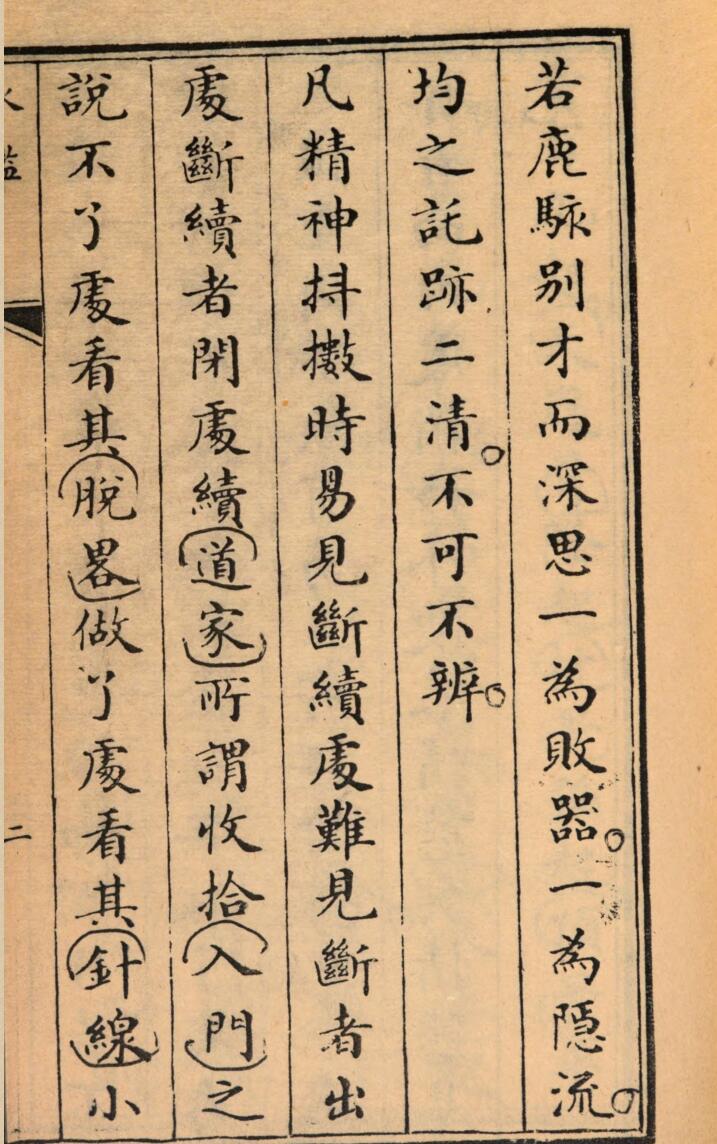 若鹿駭别才而深思一為敗器。一為隱流。
均之託跡二清。不可不辨。
凡精神抖擻時易見斷續處難見斷者出
處斷續者閉處續道家所謂收拾入門之
說不了處看其脫畧做了處看其針線小
二